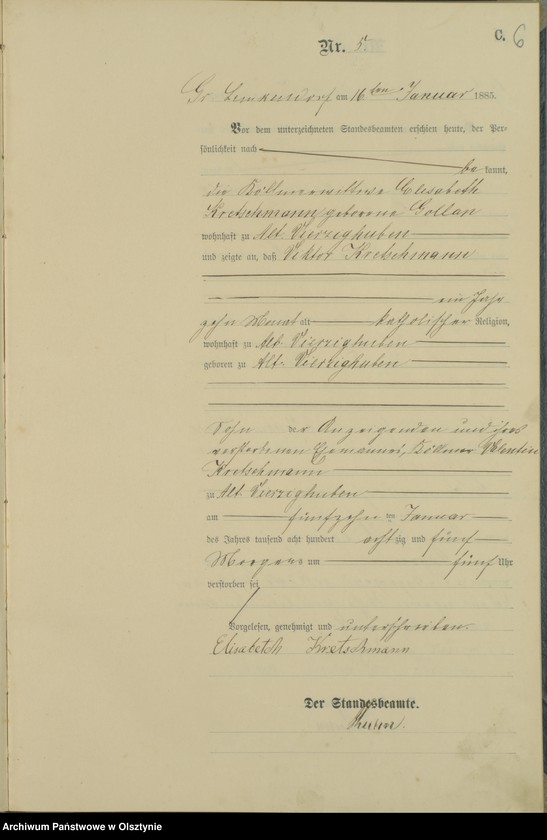 C. 6
Nr. 5.
Gr. Lemkendorf am 16ten Januar 1885.
Vor dem unterzeichneten Standesbeamten erschien heute, der Per-
sönlichkeit nach
be kannt,
die Köllmerwittwe Elisabeth
Kretschmann geborene Gollan
wohnhaft zu Alt Vierzighuben
und zeigte an, daß Viktor Kretschmann
ein Jahr
zehn Monat alt katholischer Religion,
wohnhaft zu Alt Vierzighuben
geboren zu Alt-Vierzighuben
Sohn der Anzeigenden und ihres
verstorbenen Ehemannes, Köllmer Valentin
Kretschmann
zu Alt Vierzighuben
am fünfzehn ten Januar
des Jahres tausend acht hundert acht zig und fünf
Morgens um fünf Uhr
verstorben sei.
Vorgelesen, genehmigt und unterschrieben
Elisabeth Kretschmann
Der Standesbeamte.
Archiwum Państwowe w Olsztynie